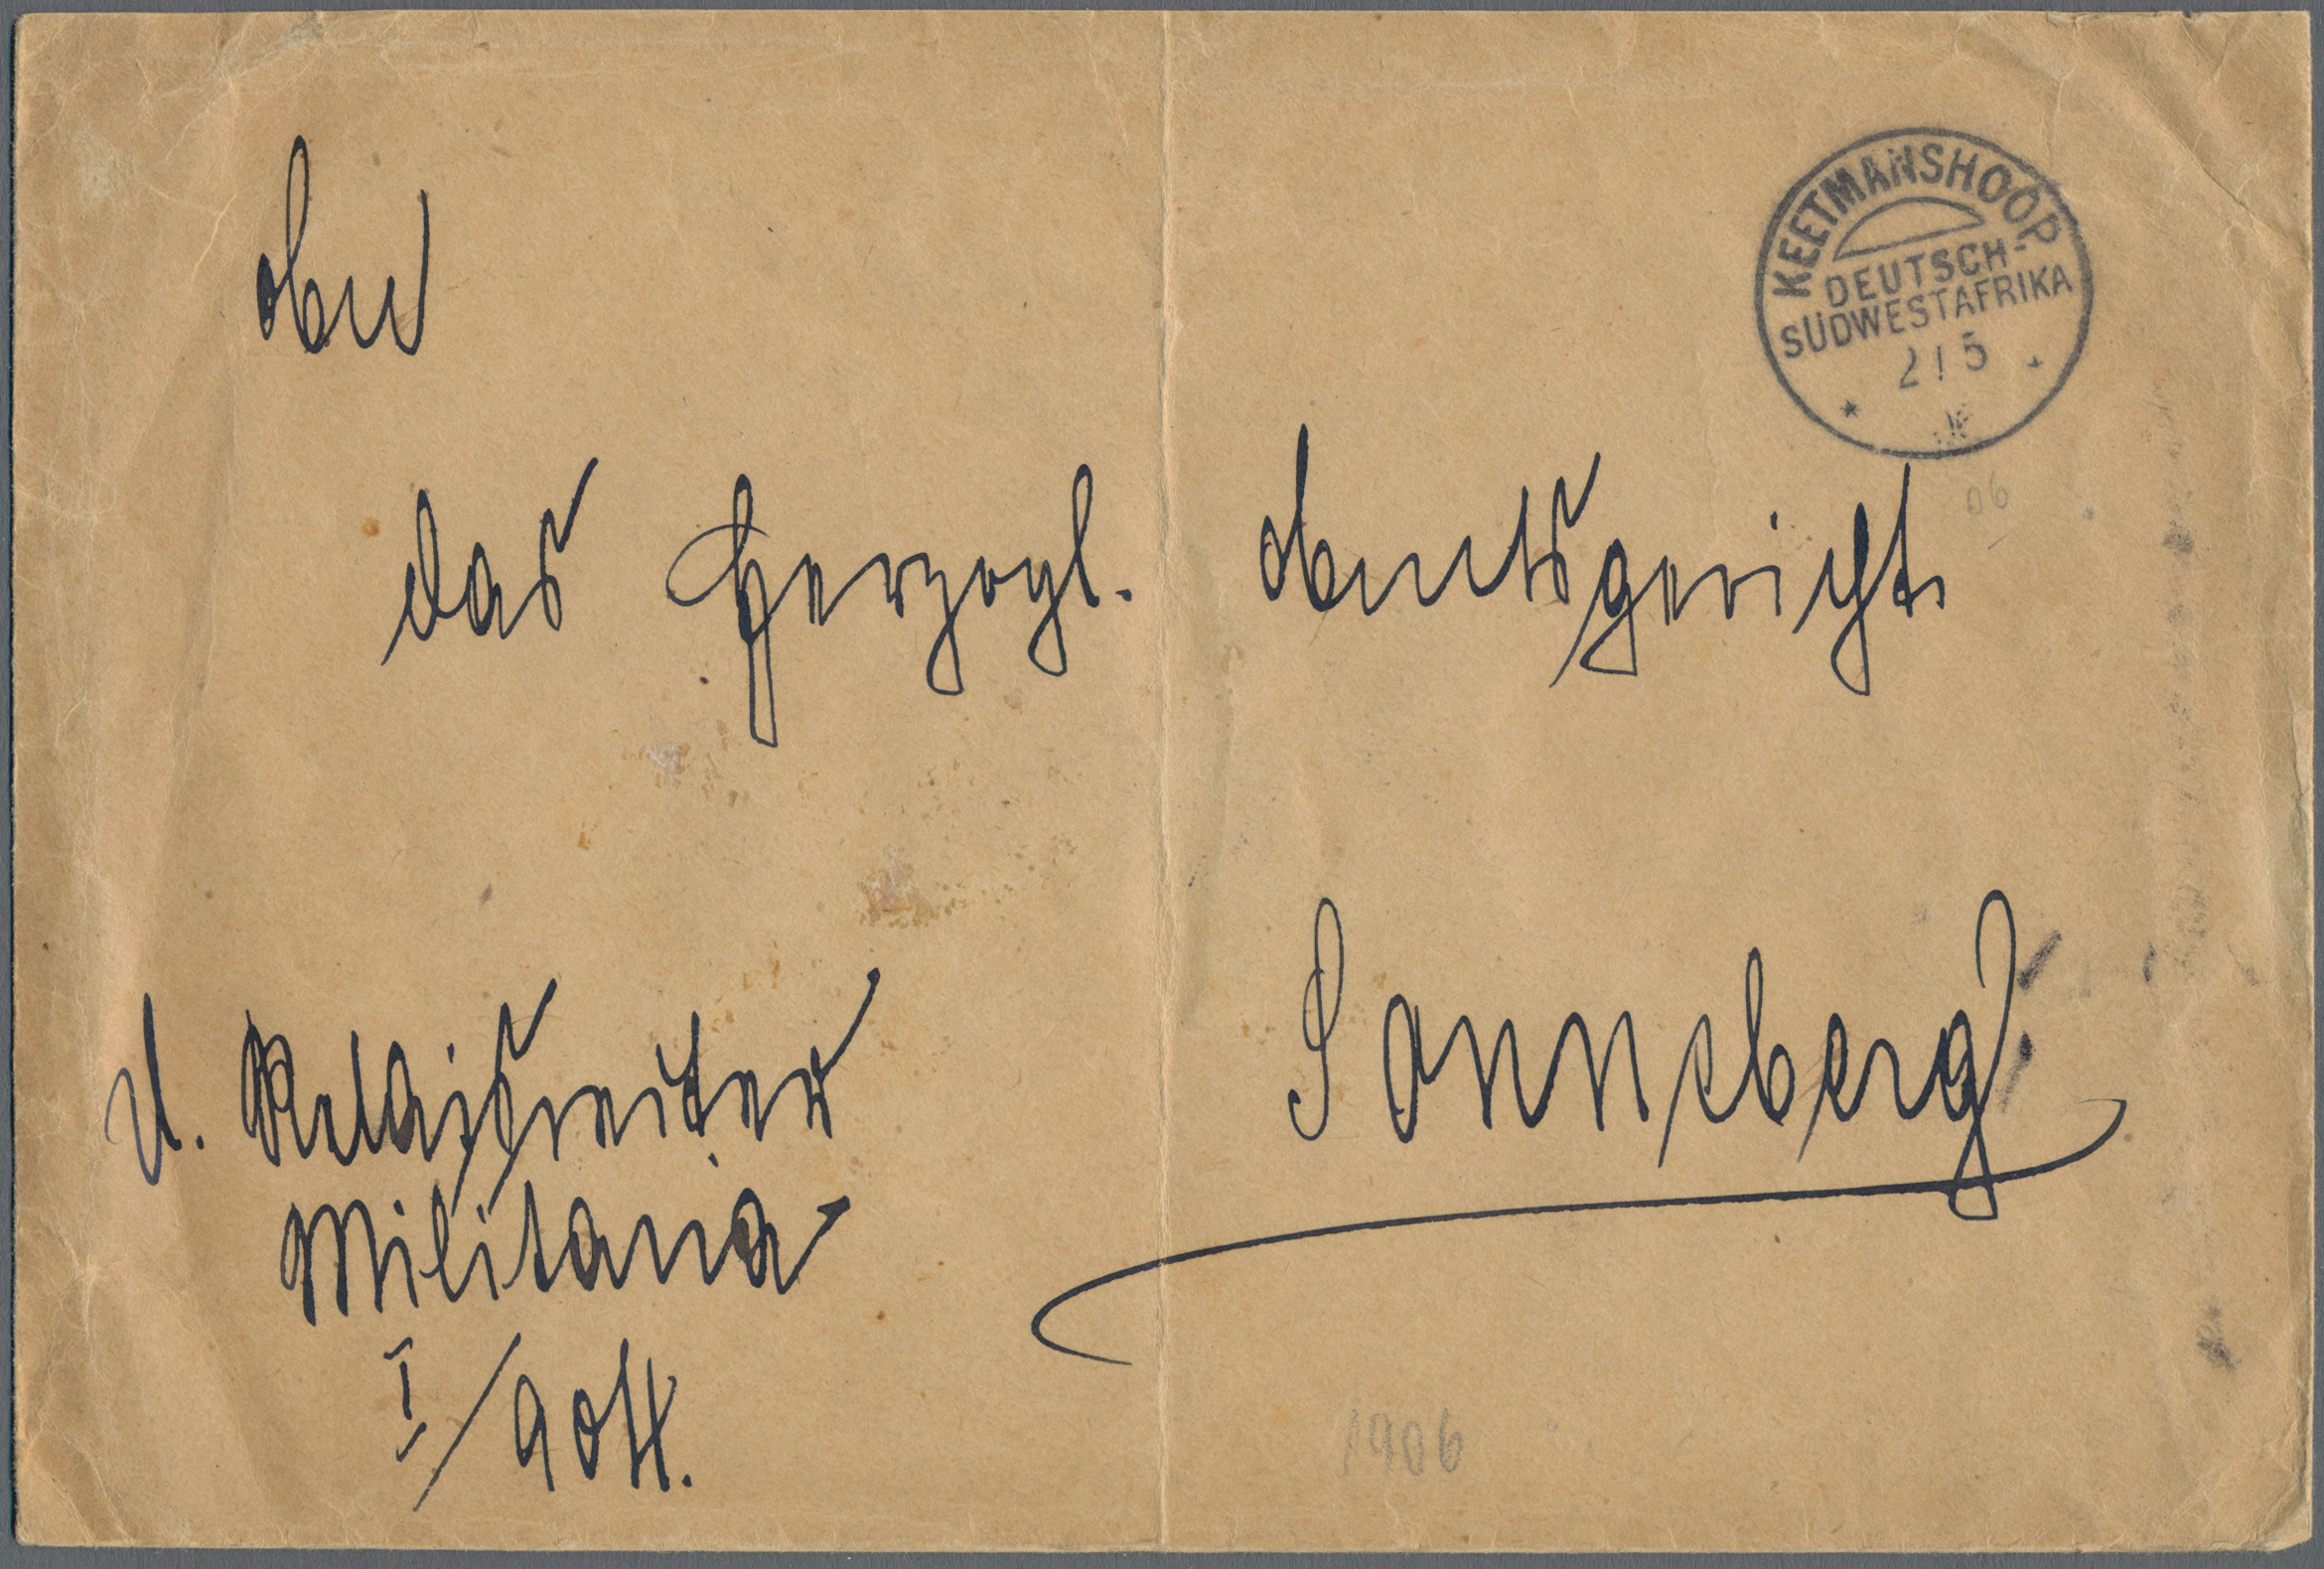 KEETMANSHOOP
DEUTSCH-
SÜDWESTAFRIKA
2/5
06
An
das Herzogl. Amtsgericht
Sonneberg.
d. Relaisreiter
Militaria
I/904.
1906